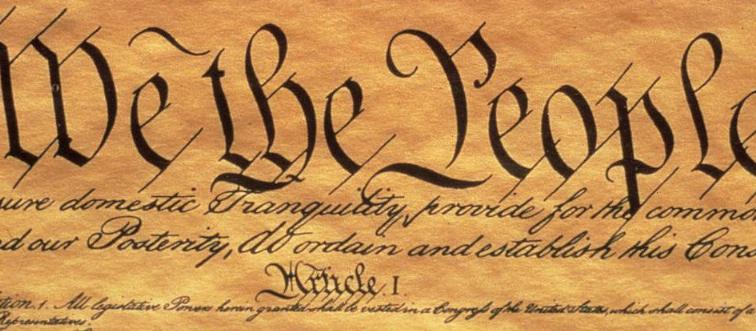 We the People
ure domestic Tranquility, provide for the comm
d our Posterity, do ordain and establish this Cons
Article I
tion. 1. All legislative Powers herein granted shall be vested in a Congress of the United States, which shall consist of
Representatives.